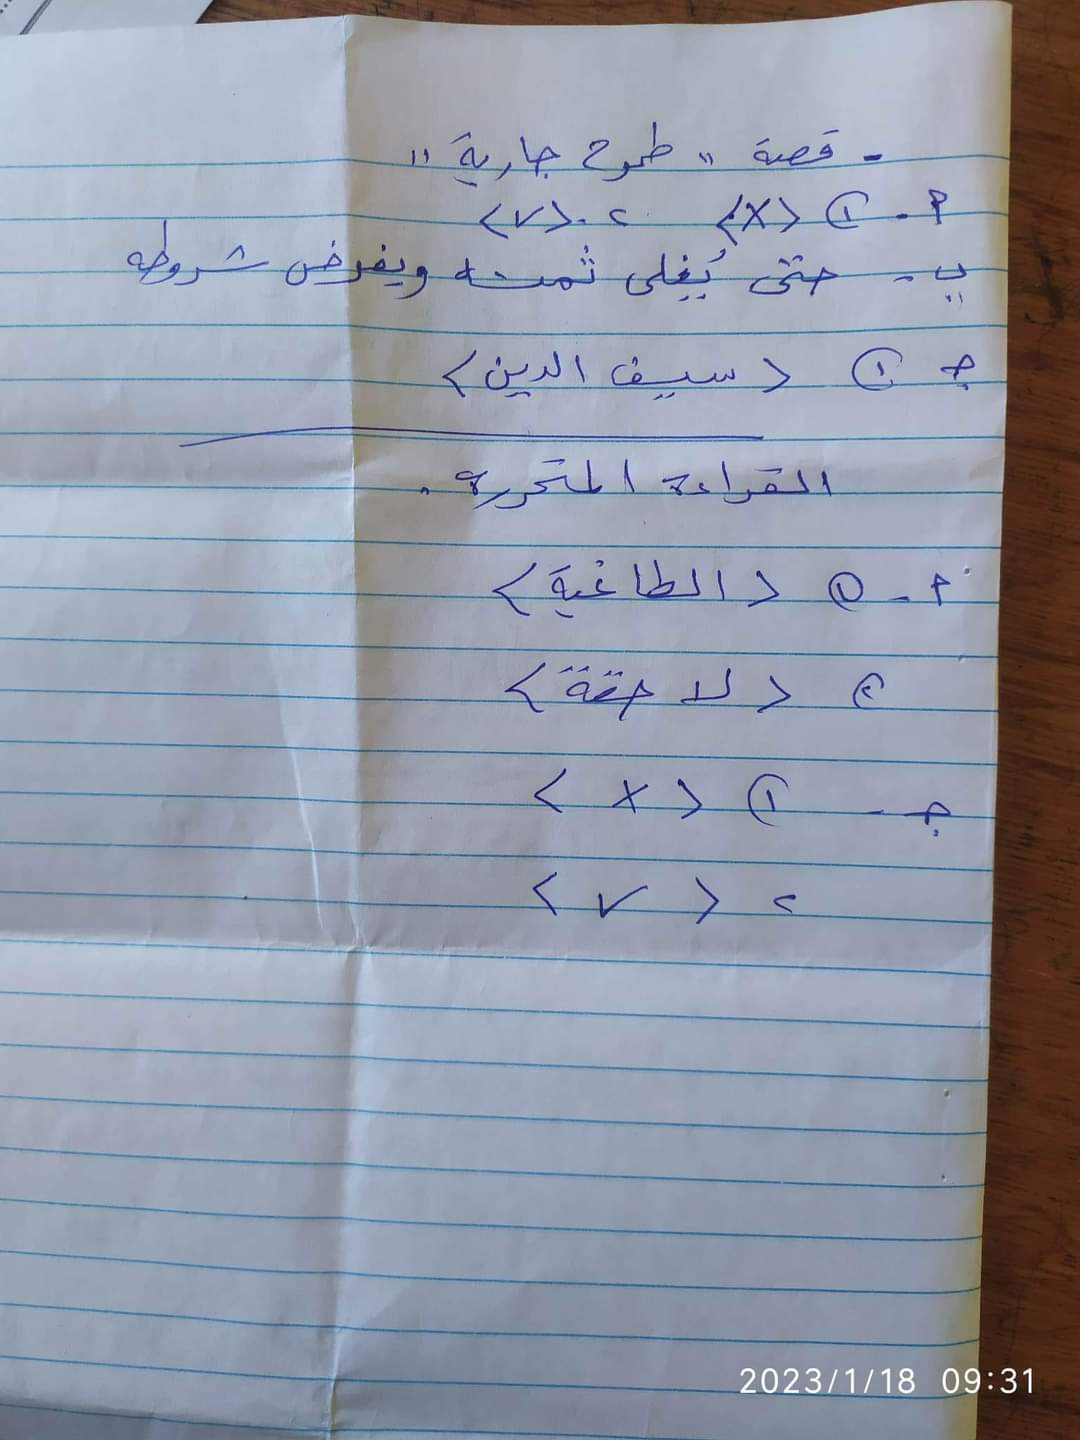 - قصة " طموح جارية "
أ - ① <X> ٢ - <✓>
ب - حتى يُغلى ثمنه ويفرض شروطه
جـ ① < سيف الدين >
القراءة المتحررة .
أ - ① < الطاغية >
② < لاحقة >
جـ - ① < X >
٢ < ✓ >
2023/1/18 09:31